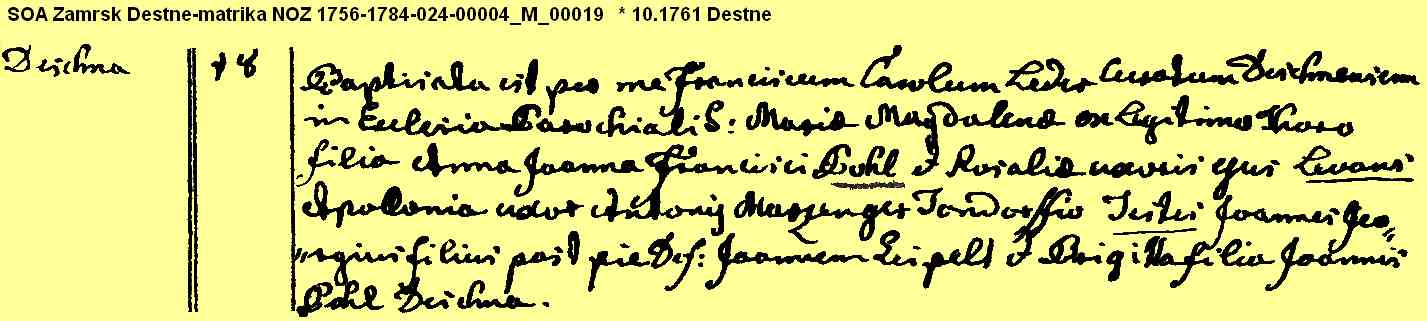 SOA Zamrsk Destne-matrika NOZ 1756-1784-024-00004_M_00019 * 10.1761 Destne
Deschna 18 Baptisata est per me Franciscum Carolum Leder Curatum Deschnensem
in Eclesia Parochiali S: Mariæ Magdalenæ ex legitimo thoro
filia Anna Joanna Francisci Pohl et Rosaliæ uxoris ejus Levans
Apolonia uxor Antonij Tondorffio Testes Joannes Geo=
rgius filius post pie Def: Joannem Leipelt et Brigitta filia Joannis
Pohl Deschna.